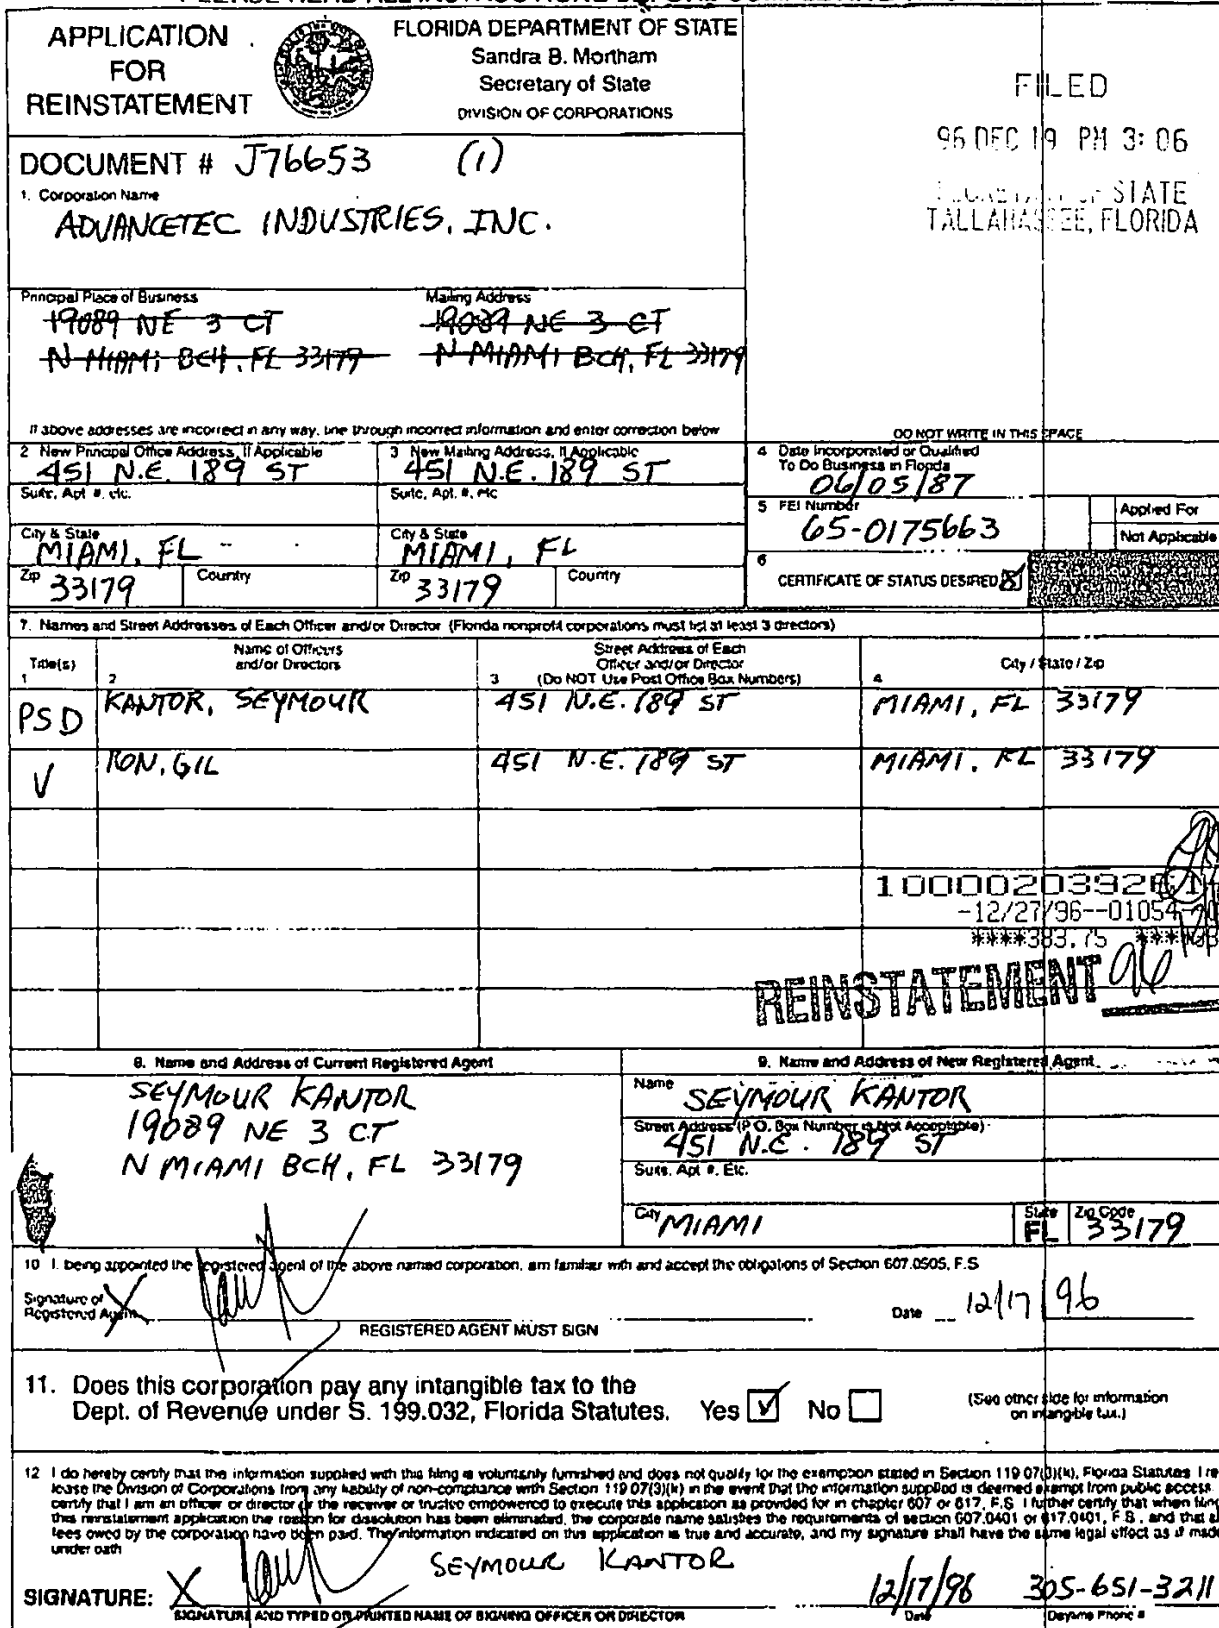 APPLICATION
FOR
REINSTATEMENT
FLORIDA DEPARTMENT OF STATE
Sandra B. Mortham
Secretary of State
DIVISION OF CORPORATIONS
FILED
96 DEC 19 PM 3:06
OF STATE
TALLAHASSEE, FLORIDA
DOCUMENT # J76653 (1)
1. Corporation Name
ADVANCETEC INDUSTRIES, INC.
Principal Place of Business
19089 NE 3 CT
N MIAMI BCH, FL 33179
Mailing Address
19089 NE 3 CT
N MIAMI BCH, FL 33179
If above addresses are incorrect in any way, line through incorrect information and enter correction below
DO NOT WRITE IN THIS SPACE
2 New Principal Office Address, If Applicable
451 N.E. 189 ST
Suite, Apt #, etc.
City & State
MIAMI, FL
Zip 33179 Country
3 New Mailing Address, If Applicable
451 N.E. 189 ST
Suite, Apt. #, etc
City & State
MIAMI, FL
Zip 33179 Country
4 Date Incorporated or Qualified
To Do Business in Florida
06/05/87
5 FEI Number
65-0175663
Applied For
Not Applicable
6
CERTIFICATE OF STATUS DESIRED X
7. Names and Street Addresses of Each Officer and/or Director (Florida nonprofit corporations must list at least 3 directors)
Title(s)
1
Name of Officers
and/or Directors
2
Street Address of Each
Officer and/or Director
3 (Do NOT Use Post Office Box Numbers)
City / State / Zip
4
PSD KANTOR, SEYMOUR 451 N.E. 189 ST MIAMI, FL 33179
V RON, GIL 451 N.E. 189 ST MIAMI, FL 33179
-12/27/96--01054
****383.75
REINSTATEMENT 96
8. Name and Address of Current Registered Agent
SEYMOUR KANTOR
19089 NE 3 CT
N MIAMI BCH, FL 33179
9. Name and Address of New Registered Agent
Name SEYMOUR KANTOR
Street Address (P.O. Box Number is Not Acceptable)
451 N.E. 189 ST
Suite, Apt #, Etc.
City MIAMI
State FL
Zip Code 33179
10 I, being appointed the registered agent of the above named corporation, am familiar with and accept the obligations of Section 607.0505, F.S
Signature of
Registered Agent X
REGISTERED AGENT MUST SIGN
Date 12/17/96
11. Does this corporation pay any intangible tax to the
Dept. of Revenue under S. 199.032, Florida Statutes. Yes No
(See other side for information
on intangible tax.)
12 I do hereby certify that the information supplied with this filing is voluntarily furnished and does not qualify for the exemption stated in Section 119 07(3)(k), Florida Statutes I re
lease the Division of Corporations from any liability of non-compliance with Section 119 07(3)(k) in the event that the information supplied is deemed exempt from public access
certify that I am an officer or director or the receiver or trustee empowered to execute this application as provided for in chapter 607 or 617, F.S I further certify that when filing
this reinstatement application the reason for dissolution has been eliminated, the corporate name satisfies the requirements of section 607.0401 or 617.0401, F.S, and that
fees owed by the corporation have been paid. The information indicated on this application is true and accurate, and my signature shall have the same legal effect as if made
under oath
SEYMOUR KANTOR
SIGNATURE: X
SIGNATURE AND TYPED OR PRINTED NAME OF SIGNING OFFICER OR DIRECTOR
12/17/96
Date
305-651-3211
Daytime Phone #